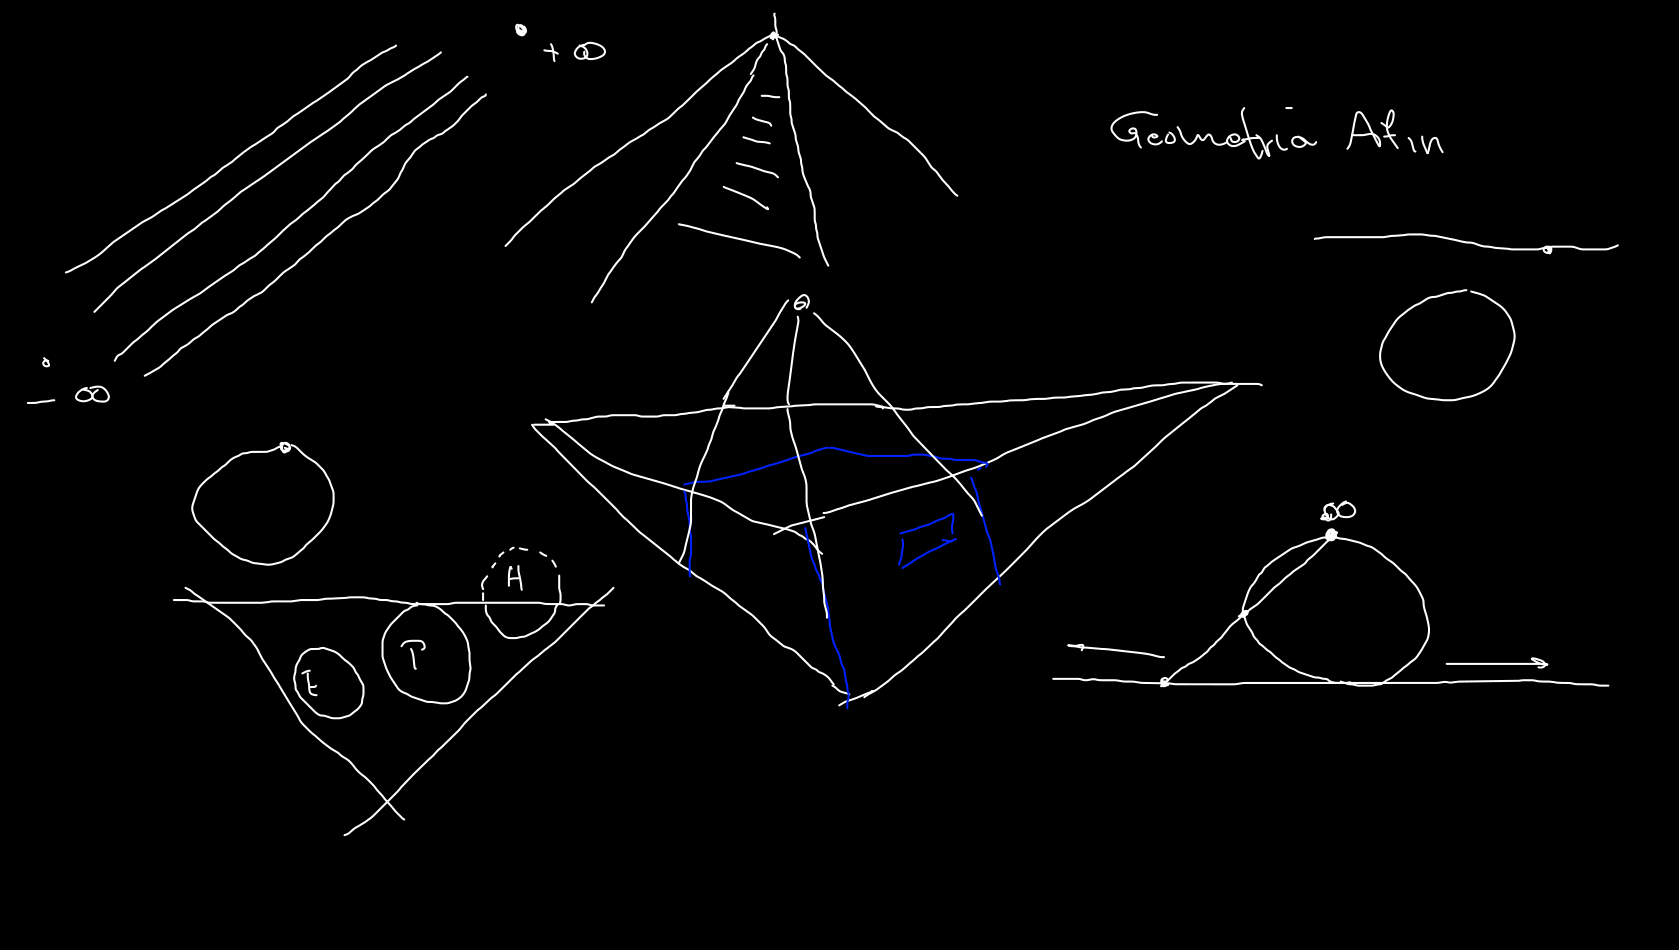 + ∞
Geometria Afin
- ∞
∞
H
P
E